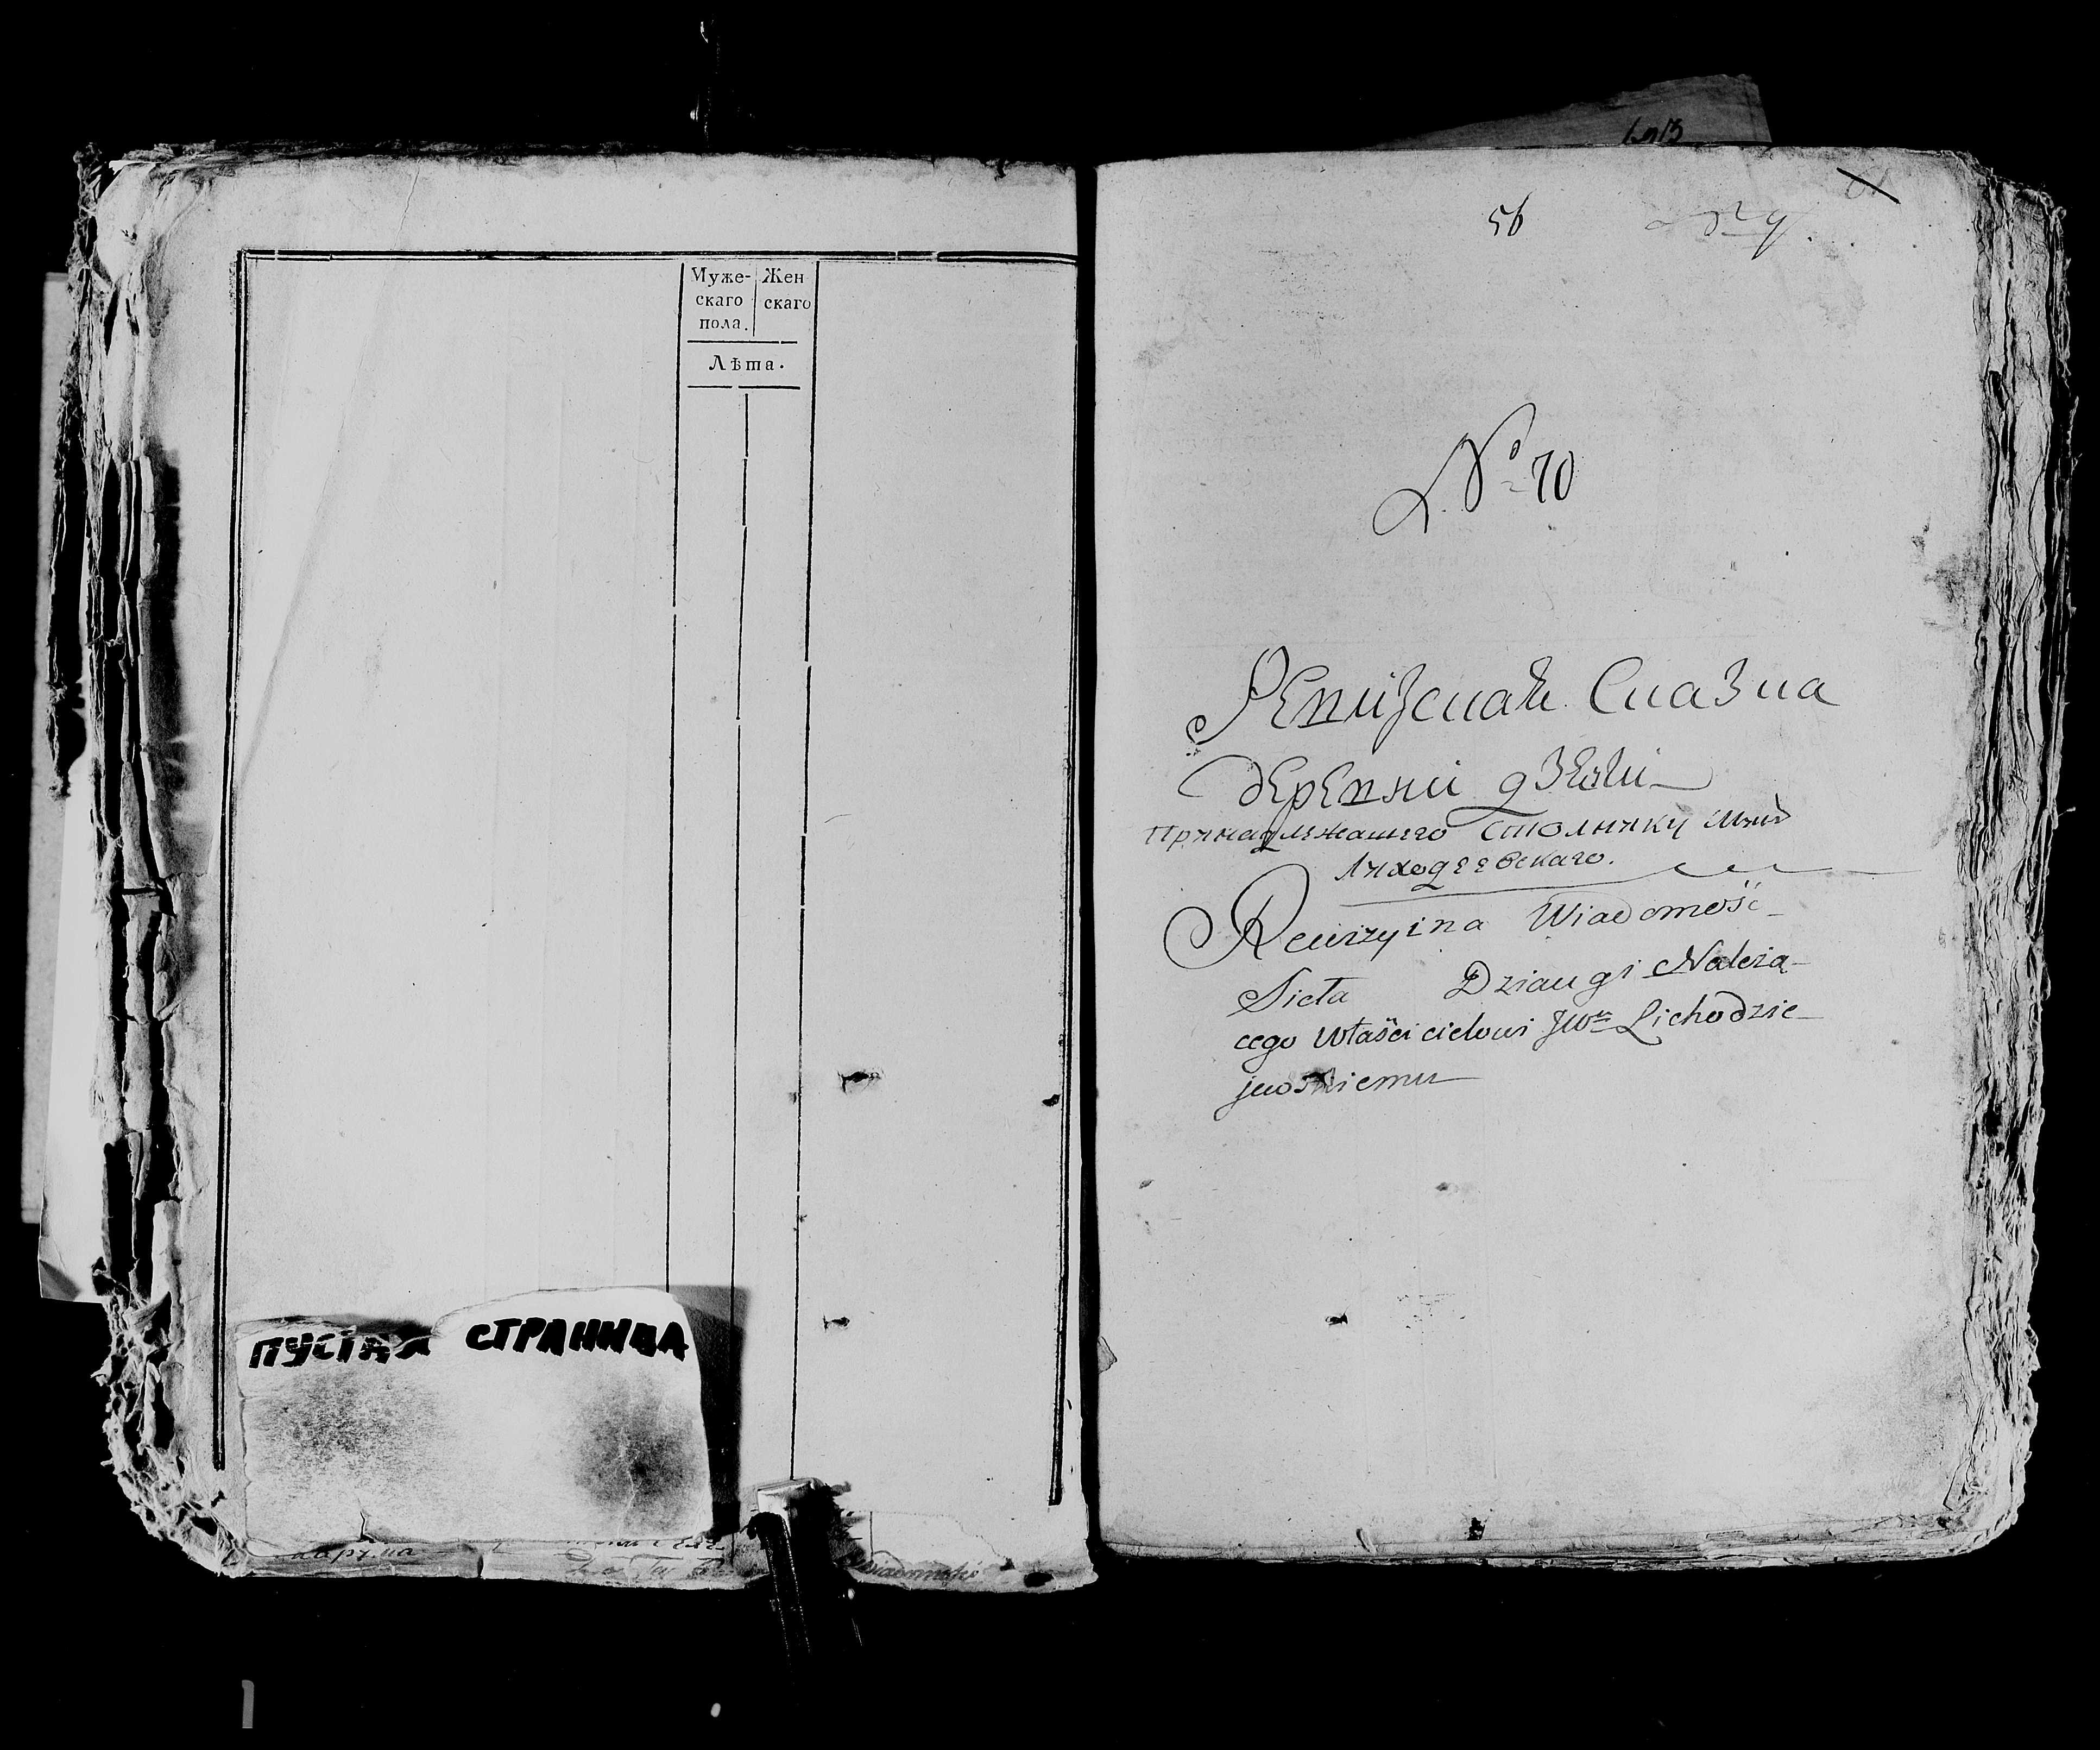 Муже- Жен
скаго скаго
пола.
Лѣта.
ПУСТАЯ СТРАНИЦА
56
№ 70
Ревизская Сказка
деревни
Принадлежащего Столнику
Лиходеевскаго.
Rewizyina Wiadomość
Sioła Dziaugi Należą-
cego Właścicielowi JWu Lichodzie-
jewskiemu